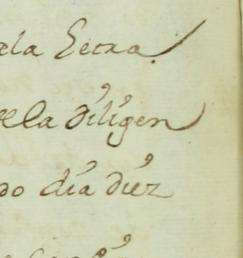 ela Letra
ela diligen
do día diez